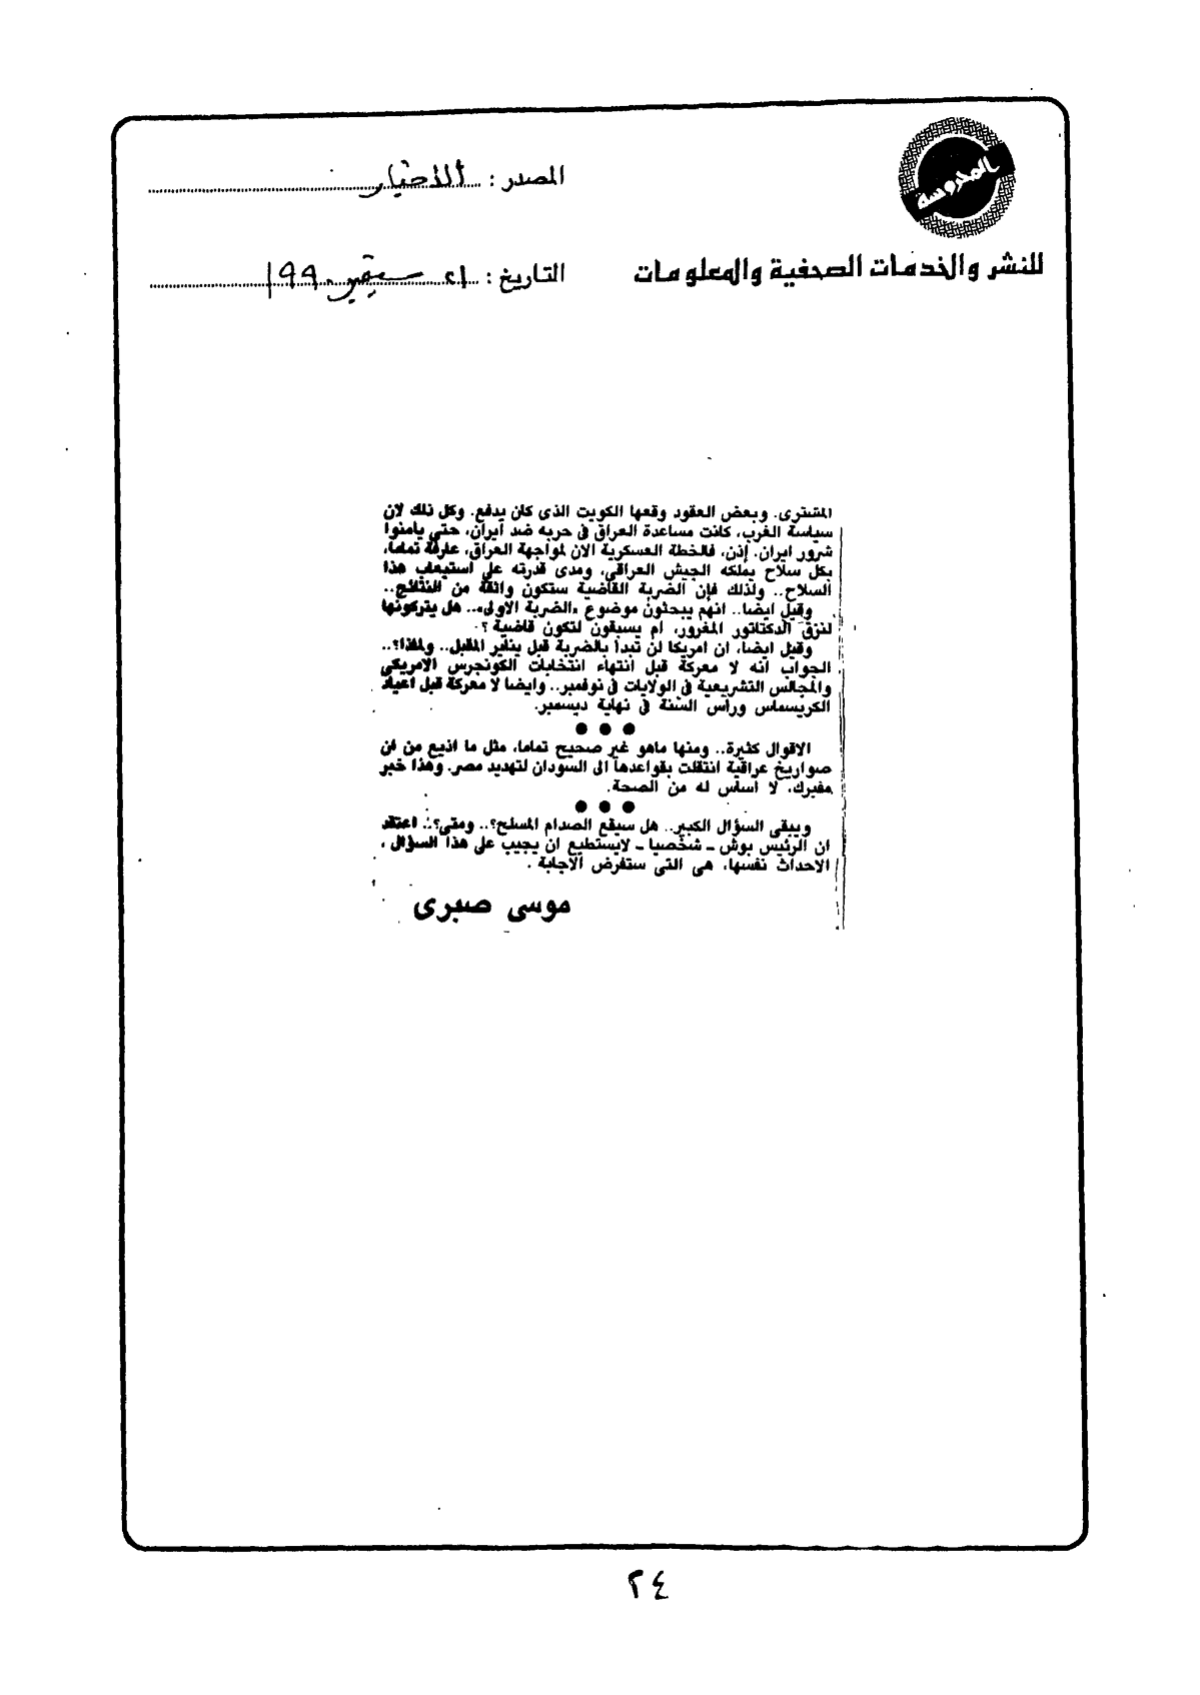 المحروسة
للنشر والخدمات الصحفية والمعلومات
المصدر : الأخبار
التاريخ : ٢١ سبتمبر ١٩٩٠
المشترى. وبعض العقود وقعها الكويت الذى كان يدفع. وكل ذلك لان
سياسة الغرب، كانت مساعدة العراق فى حربه ضد ايران، حتى يامنوا
شرور ايران. إذن، فالخطة العسكرية الان لمواجهة العراق، عارفة تماما،
بكل سلاح يملكه الجيش العراقى، ومدى قدرته على استيعاب هذا
السلاح.. ولذلك فإن الضربة القاضية ستكون واثقة من النتائج..
وقيل ايضا.. انهم يبحثون موضوع «الضربة الاولى».. هل يتركونها
لنزق الدكتاتور المغرور، ام يسبقون لتكون قاضية ؟
وقيل ايضا، ان امريكا لن تبدأ بالضربة قبل يناير المقبل.. ولماذا؟..
الجواب انه لا معركة قبل انتهاء انتخابات الكونجرس الامريكى
والمجالس التشريعية فى الولايات فى نوفمبر.. وايضا لا معركة قبل اعياد
الكريسماس وراس السنة فى نهاية ديسمبر.
● ● ●
الاقوال كثيرة.. ومنها ماهو غير صحيح تماما، مثل ما اذيع من ان
صواريخ عراقية انتقلت بقواعدها الى السودان لتهديد مصر. وهذا خبر
مفبرك، لا اساس له من الصحة.
● ● ●
ويبقى السؤال الكبير.. هل سيقع الصدام المسلح؟.. ومتى؟.. اعتقد
ان الرئيس بوش - شخصيا - لايستطيع ان يجيب على هذا السؤال ،
الاحداث نفسها، هى التى ستفرض الاجابة .
موسى صبرى
٢٤